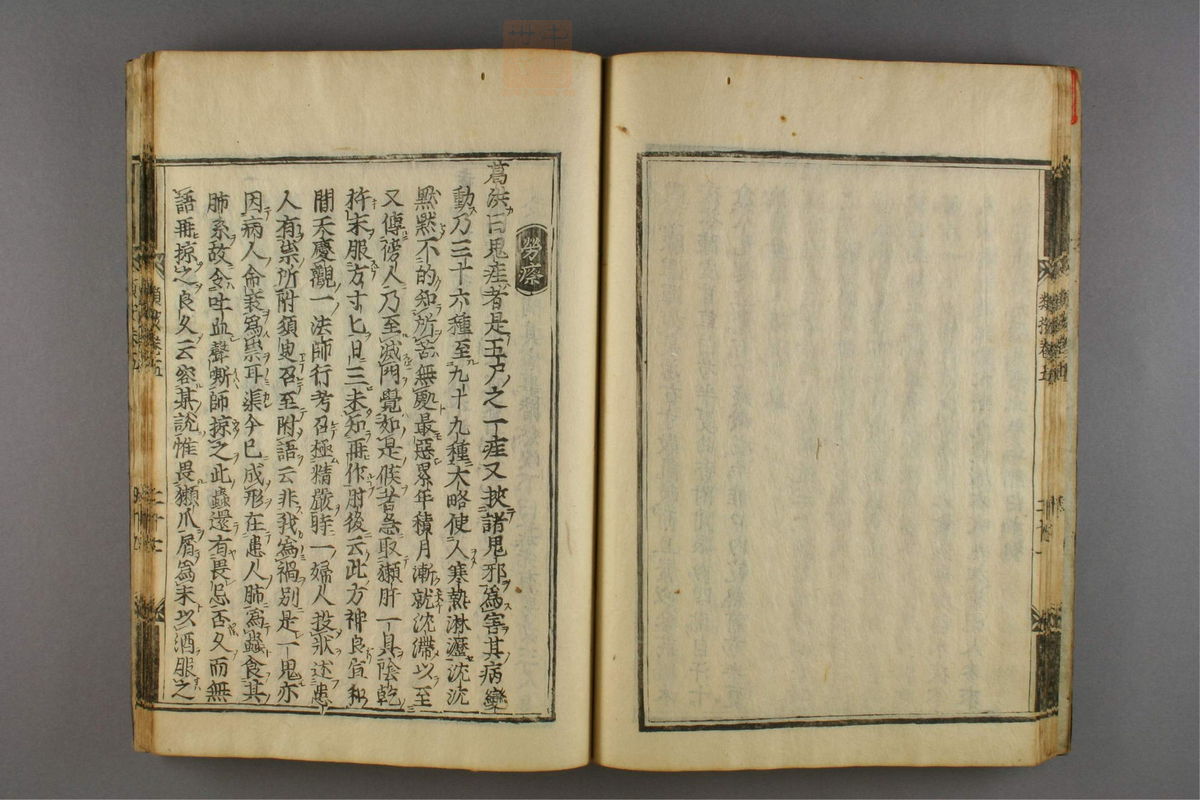 勞瘵
葛洪曰鬼疰者是五尸之一疰又挾諸鬼邪爲害其病變
動乃三十六種至九十九種大略使人寒熱淋瀝沈沈
默默不的知所苦無處最惡累年積月漸就沈滯以至
又傳傍人乃至滅門覺如是候者急取獺肝一具陰乾
杵末服方寸匕日三未知再作肘後云此方神良宣和
間天慶觀一法師行考召極精嚴時一婦人投狀述患
人有祟所附須臾召至附語云非我爲禍別是一鬼亦
因病人命衰爲祟耳渠今已成形在患人肺爲蟲食其
肺系故令吐血聲嘶師掠之此蟲還有畏忌否久而無
語再掠之良久云容某說惟畏獺爪屑爲末以酒服之